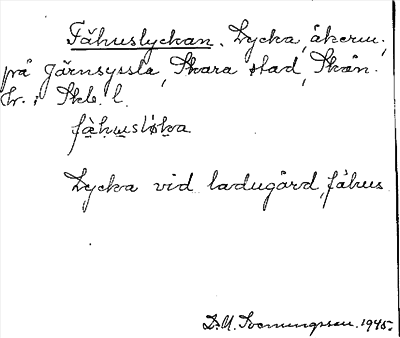 Fähuslyckan. Lycka, åkerm.,
på Järnsyssla, Skara stad, Skån.
hr., Skb. l.
fä̀hu̱slø̱ka
Lycka vid ladugård, fähus
D.U. Svenungsson. 1945.